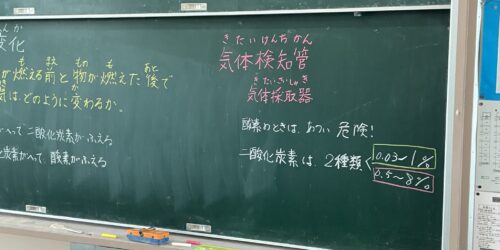 んか
変化
も まえ もの も あと
が燃える前と物が燃えた後で
か
気は、どのように変わるか。
へって二酸化炭素がふえる
化炭素がへって、酸素がふえる
きたいけんちかん
気体検知管
きたいさいしゅき
気体採取器
酸素のときは、あつい 危険!
二酸化炭素は、2種類
0.03〜1%
0.5〜8%